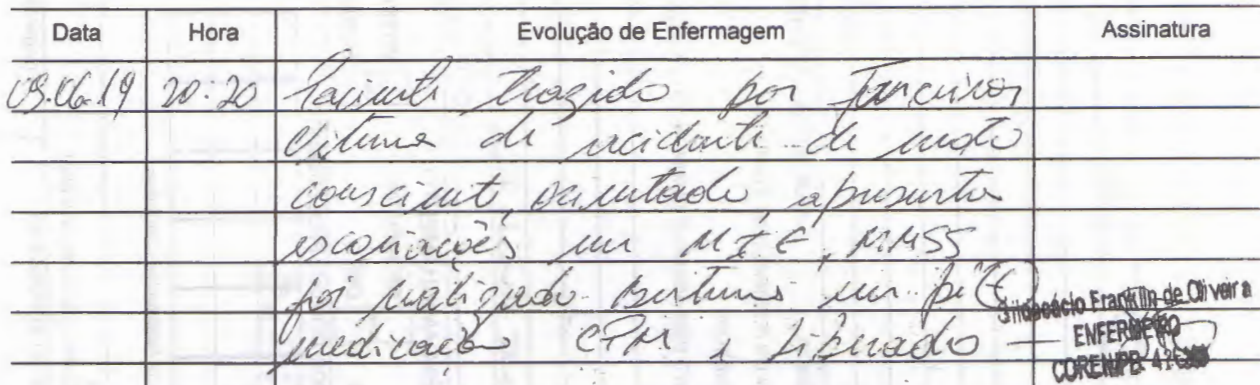 Data Hora Evolução de Enfermagem Assinatura
09.06.19 20:20 Paciente trazido por terceiros
vitima de acidente de moto
consciente, orientado, apresenta
escoriações em MIE, MMSS
foi realizado suturas em pé (E)
medicação CPM e liberado
Franklin de Oliveira
ENFERMEIRO
COREN/PB